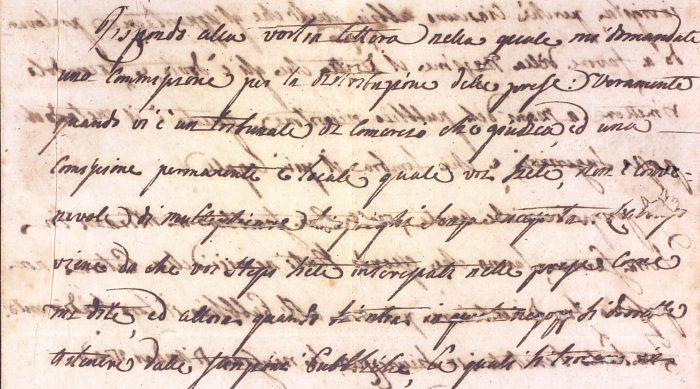 Rispondo alla vostra lettera nella quale mi domandate
una Commissione per la distribuzione delle prese: Veramente
quando vi è un tribunale di Comercio che giudica, ed una
Comissione permanente e locale quale voi siete, non è conve-
nevole di multiplicare impieghi senza
viene da che voi stessi siete interessati nelle prese come
mi dite, ed allora quando si entra in questi negozj si dovrebbe
astenere dalle funzioni Pubbliche, le quali si